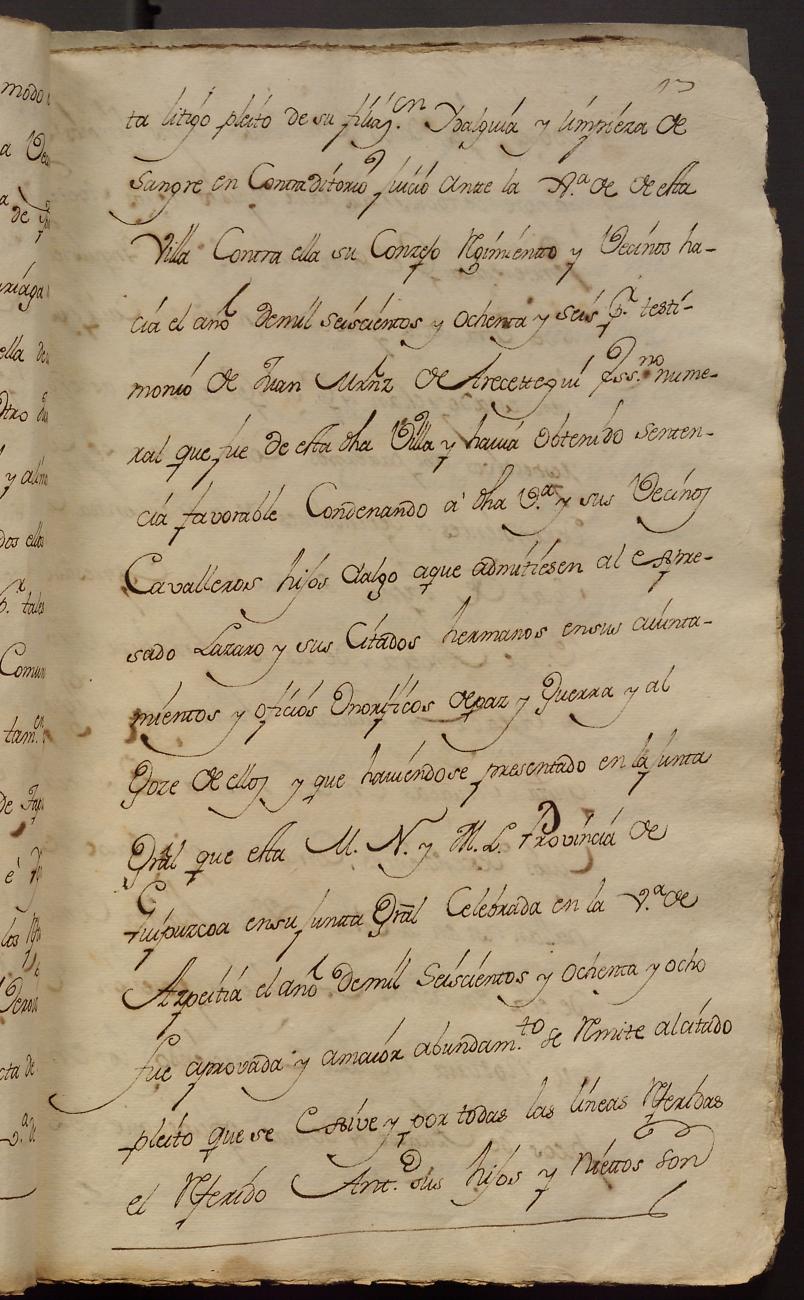 13
ta litigo pleito de su filiaz.on Ydalguia y limpieza de
sangre en Contraditorio juicio ante la Jª. de de esta
Villa Contra ella su Conzejo Rgimiento y Vecinos ha-
cia el año demil seiscientos y ochenta y seis p.r testi-
monio de Juan Mrnz de Arecettegui Ess.no nume-
ral que fue de esta dha Villa y havia obtenido senten-
cia favorable Condenando à dha V.a y sus Vecinos
Cavalleros hijos dalgo aque admitiesen al expre-
sado Lazaro y sus Citados hermanos ensus aiunta-
mientos y oficios onorificos depaz y Guerra y al
Goze de ellos y que haviendose presentado en la Junta
Gral que esta M. N. y M. L. Provincia de
Guipuzcoa ensu Juntta Gral Celebrada en la V.a de
Azpeitia el año demil Seiscientos y ochenta y ocho
fue aprovada y amaior abundam.to se Rmite alcitado
pleito que se Exsive y por todas las lineas Rferidas
el Rferido Ant.o sus hijos y Niettos son
modo
a
a de
ella de
otro
y
dos ellos
p.r tales
Comun
tam.en
de
é
los
cta de
v.a de